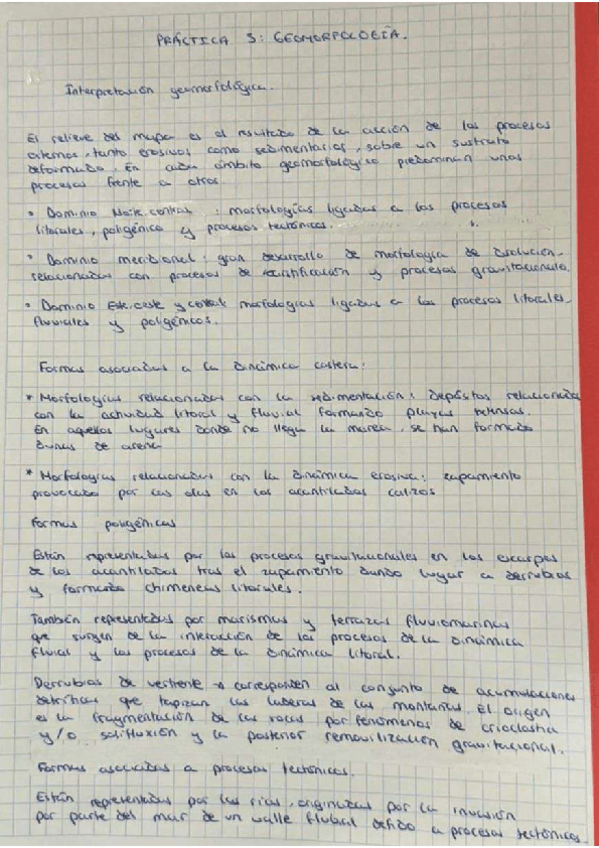 PRÁCTICA 3: GEOMORFOLOGÍA.
Interpretación geomorfológica.
El relieve del mapa es el resultado de la acción de los procesos
externos, tanto erosivos como sedimentarios, sobre un sustrato
deformado. En cada ámbito geomorfológico predominan unos
procesos frente a otros.
• Dominio Norte.central : morfologías ligadas a los procesos
litorales, poligénico y procesos tectónicos.
• Dominio meridional: gran desarrollo de morfología de disolución
relacionadas con procesos de karstificación y procesos gravitacionales.
• Dominio Este, oeste y central morfologías ligadas a los procesos litorales,
fluviales y poligénicos.
Formas asociadas a la dinámica costera:
* Morfologías relacionadas con la sedimentación: depósitos relacionados
con la actividad litoral y fluvial formando playas extensas.
En aquellos lugares donde no llega la marea, se han formado
dunas de arena
* Morfologías relacionadas con la dinámica erosiva: zapamiento
provocado por las olas en los acantilados calizos
Formas poligénicas
Están representadas por los procesos gravitacionales en los escarpes
de los acantilados tras el zapamiento dando lugar a derrubios
y formando chimeneas litorales.
También representadas por marismas y terrazas fluviomarinas
que surgen de la interacción de los procesos de la dinámica
fluvial y los procesos de la dinámica litoral.
Derrubios de vertiente → corresponden al conjunto de acumulaciones
detríticas que tapizan las laderas de las montañas. El origen
es la fragmentación de las rocas por fenómenos de crioclastia
y/o solifluxión y la posterior removilización gravitacional.
Formas asociadas a procesos tectónicos.
Están representadas por las rías, originadas por la invasión
por parte del mar de un valle fluvial debido a procesos tectónicos.